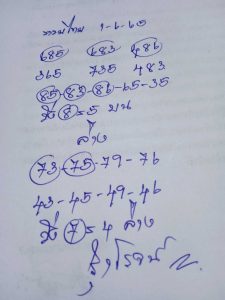 1-6-65
685 683 486
365 735 483
85-83-86-65-35
8=5 บน
ล่าง
73-75-79-76
43-45-49-46
7=4 ล่าง